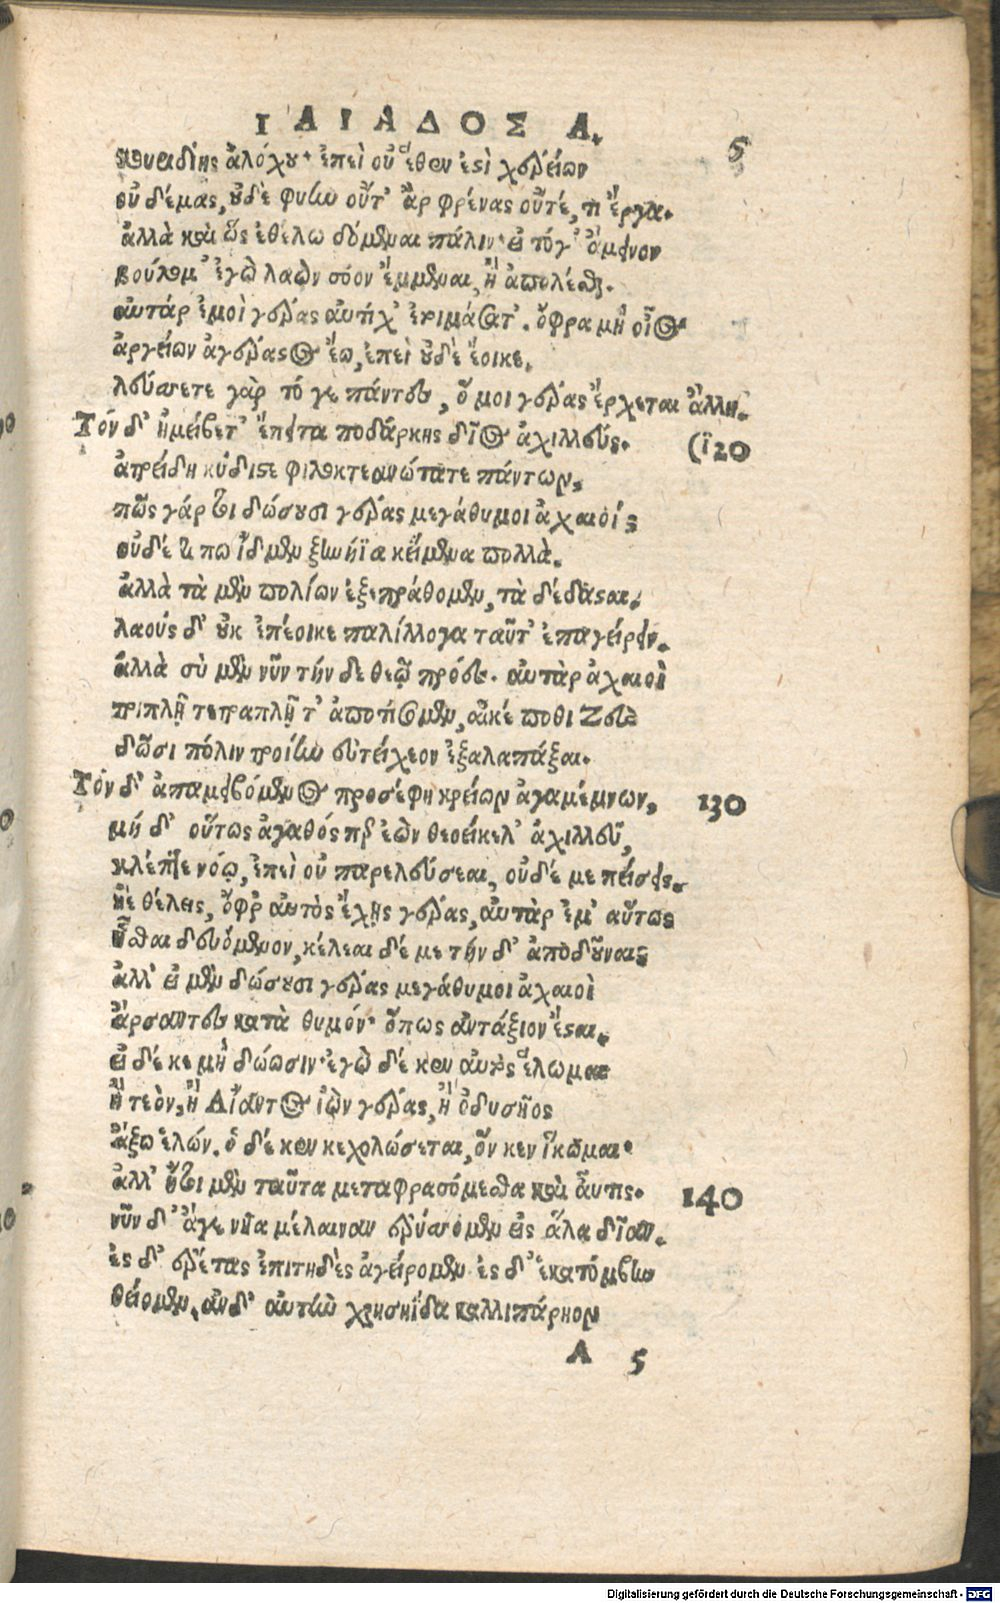 ΙΛΙΑΔΟΣ Α.
5
κουριδίης ἀλόχου· ἐπεὶ οὔ ἕθεν ἐστὶ χερείων
οὐ δέμας, οὐδὲ φυὴν οὔτ' ἂρ φρένας οὔτέ, τι ἔργα.
ἀλλὰ καὶ ὧς ἐθέλω δόμεναι πάλιν· εἰ τόγ' ἄμεινον
βούλομ' ἐγὼ λαὸν σόον ἔμμεναι, ἢ ἀπολέσθαι.
αὐτάρ ἐμοὶ γέρας αὐτίχ' ἑτοιμάσατ'. ὄφρα μὴ οἶος
ἀργείων ἀγέραστος ἔω, ἐπεὶ οὐδὲ ἔοικε.
λεύσσετε γὰρ τό γε πάντες, ὅ μοι γέρας ἔρχεται ἄλλῃ.
Τόν δ' ἠμείβετ' ἔπειτα ποδάρκης δῖος ἀχιλλεύς. (120
ἀτρείδη κύδιστε φιλοκτεανώτατε πάντων,
πῶς γάρ τοι δώσουσι γέρας μεγάθυμοι ἀχαιοί;
οὐδέ τι πω ἴδμεν ξυνήϊα κείμενα πολλὰ.
ἀλλὰ τὰ μὲν πολίων ἐξεπράθομεν, τὰ δέδασται.
λαούς δ' οὐκ ἐπέοικε παλίλλογα ταῦτ' ἐπαγείρειν.
ἀλλὰ σὺ μὲν νῦν τήν δε θεῷ πρόες. αὐτὰρ ἀχαιοὶ
τριπλῇ τετραπλῇ τ' ἀποτίσομεν, αἴκέ ποθι Ζεὺς
δῶσι πόλιν τροίην εὐτείχεον ἐξαλαπάξαι.
Τόν δ' ἀπαμειβόμενος προσέφη κρείων ἀγαμέμνων, 130
μή δ' οὕτως ἀγαθός περ ἐὼν θεοείκελ' ἀχιλλεῦ,
κλέπτε νόῳ, ἐπεὶ οὐ παρελεύσεαι, οὐδέ με πείσεις.
ἢ ἐθέλεις, ὄφρ' αὐτὸς ἔχῃς γέρας, αὐτὰρ ἔμ' αὔτως
ἧσθαι δευόμενον, κέλεαι δέ με τήν δ' ἀποδοῦναι;
ἀλλ' εἰ μὲν δώσουσι γέρας μεγάθυμοι ἀχαιοὶ
ἄρσαντες κατὰ θυμόν· ὅπως ἀντάξιον ἔσται.
εἰ δέ κε μὴ δώωσιν· ἐγὼ δέ κεν αὐτὸς ἕλωμαι
ἢ τεὸν, ἢ Αἴαντος ἰὼν γέρας, ἢ ὀδυσῆος
ἄξω ἑλών. ὁ δέ κεν κεχολώσεται, ὅν κεν ἵκωμαι·
ἀλλ' ἤτοι μὲν ταῦτα μεταφρασόμεσθα καὶ αὖτις. 140
νῦν δ' ἄγε νῆα μέλαιναν ἐρύσσομεν εἰς ἅλα δῖαν.
ἐς δ' ἐρέτας ἐπιτηδὲς ἀγείρομεν ἐς δ' ἑκατόμβην
θείομεν, ἂν δ' αὐτὴν χρυσηΐδα καλλιπάρηον
Α 5
Digitalisierung gefördert durch die Deutsche Forschungsgemeinschaft - DFG